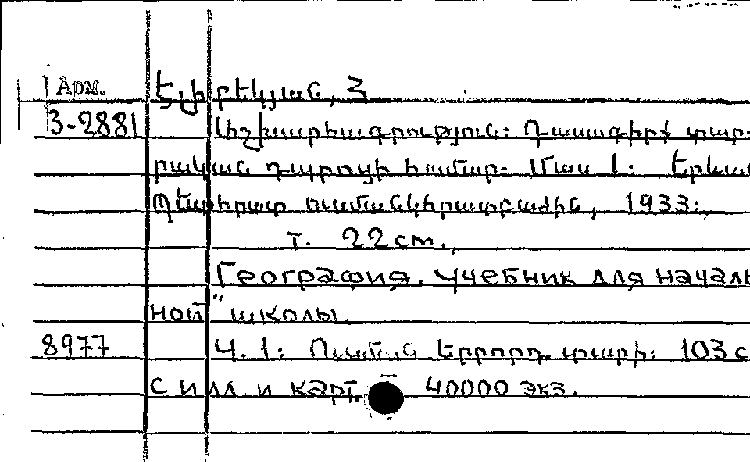 Арм.
3-2881
Աշխարհագրություն: Դասագիրք տար-
րական դպրոցի համար: Մաս 1: Երևան
Պետհրատ ուսմանկհրատբաժին, 1933:
т. 22 cm.,
География. Учебник для началь
ной школы
8977 Ч. 1: Ուսման երրորդ տարի: 103 с
с илл. и карт. 40000 экз.